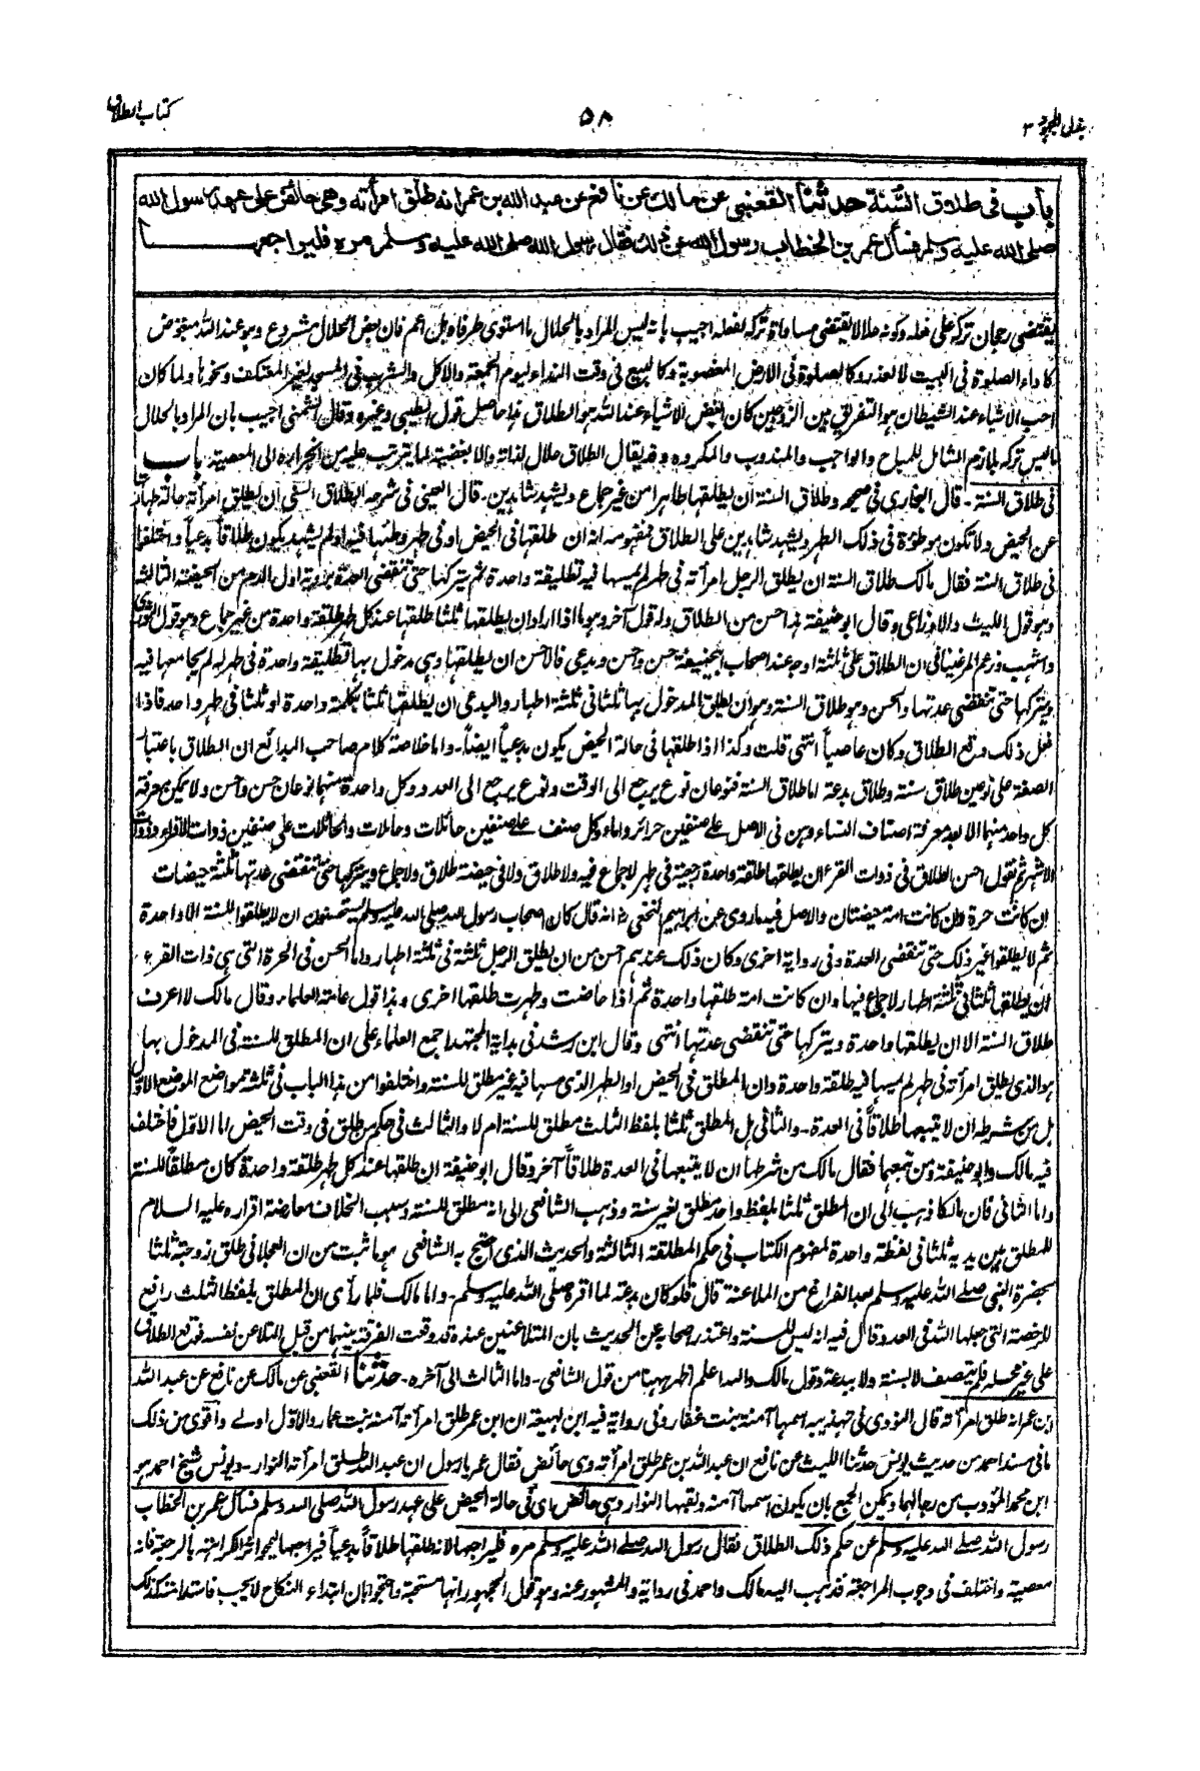 كتاب الطلاق
٥٨
بذل المجهود ٣
باب فى طلاق السنة حدثنا القعنبى عن مالك عن نافع عن عبد الله بن عمر انه طلق امرأته وهى حائض على عهد رسول الله
صلى الله عليه وسلم فسأل عمر بن الخطاب رسول الله عن ذلك فقال رسول الله صلى الله عليه وسلم مره فليراجعها
يقتضى رجحان تركه على فعله وكونه حلالا يقتضى مساواة تركه لفعله اجيب بانه ليس المراد بالحلال ما استوى طرفاه بل اعم فان بعض الحلال مشروع وهو عند الله مبغوض
كاداء الصلوة فى البيت لا لعذر وكالصلوة فى الارض المغصوبة وكالبيع فى وقت النداء ليوم الجمعة والاكل والشرب فى المسجد لغير المعتكف ونحوها ولما كان
احب الاشياء عند الشيطان هو التفريق بين الزوجين كان ابغض الاشياء عند الله هو الطلاق هذا حاصل قول الطيبى وغيره وقال الشمنى اجيب بان المراد بالحلال
ما ليس تركه بلازم الشامل للمباح والواجب والمندوب والمكروه وقد يقال الطلاق حلال لذاته والابغضية لما يترتب عليه من انجراره الى المعصية باب
فى طلاق السنة - قال البخارى فى صحيحه وطلاق السنة ان يطلقها طاهرا من غير جماع ويشهد شاهدين - قال العينى فى شرحه الطلاق السنى ان يطلق امرأته حالة طهارتها
عن الحيض ولا تكون موطوءة فى ذلك الطهر ويشهد شاهدين على الطلاق فمفهومه انه ان طلقها فى الحيض او فى طهر وطئها فيه او لم يشهد يكون طلاقاً بدعياً واختلفوا
فى طلاق السنة فقال مالك طلاق السنة ان يطلق الرجل امرأته فى طهر لم يمسها فيه تطليقة واحدة ثم يتركها حتى تنقضى العدة برؤية اول الدم من الحيضة الثالثة
وهو قول الليث والاوزاعى وقال ابو حنيفة هذا احسن من الطلاق وله قول آخر وهو ما اذا اراد ان يطلقها ثلثا طلقها عند كل طهر طلقة واحدة من غير جماع وهو قول الثورى
واشهب وزعم المرغينانى ان الطلاق على ثلثة اوجه عند اصحاب ابيحنيفة حسن واحسن وبدعى فالاحسن ان يطلقها وهى مدخول بها تطليقة واحدة فى طهر لم يجامعها فيه
ويتركها حتى تنقضى عدتها والحسن وهو طلاق السنة وهو ان يطلق المدخول بها ثلثا فى ثلثة اطهار والبدعى ان يطلقها ثلثا بكلمة واحدة او ثلثا فى طهر واحد فاذا
فعل ذلك وقع الطلاق وكان عاصياً انتهى قلت وكذا اذا طلقها فى حالة الحيض يكون بدعياً ايضاً - واما خلاصة كلام صاحب البدائع ان الطلاق باعتبار
الصفة على نوعين طلاق سنة وطلاق بدعة اما طلاق السنة فنوعان نوع يرجع الى الوقت ونوع يرجع الى العدد وكل واحدة منهما نوعان حسن واحسن ولا يمكن معرفة
كل واحد منهما الا بعد معرفة اصناف النساء وهن فى الاصل على صنفين حرائر واماء وكل صنف على صنفين حائلات وحاملات والحائلات على صنفين ذوات الاقراء وذوات
الاشهر ثم نقول احسن الطلاق فى ذوات القرء ان يطلقها طلقة واحدة رجعية فى طهر لا جماع فيه ولا طلاق ولا فى حيضة طلاق ولا جماع ويتركها حتى تنقضى عدتها ثلثة حيضات
ان كانت حرة وان كانت امة حيضتان والاصل فيه ما روى عن ابراهيم النخعى رح انه قال كان اصحاب رسول الله صلى الله عليه وسلم يستحسنون ان لا يطلقوا للسنة الا واحدة
ثم لا يطلقوا غير ذلك حتى تنقضى العدة وفى رواية اخرى وكان ذلك عندهم احسن من ان يطلق الرجل ثلثة فى ثلثة اطهار واما الحسن فى الحرة التى هى ذات القرء
ان يطلقها ثلثا فى ثلثة اطهار لا جماع فيها وان كانت امة طلقها واحدة ثم اذا حاضت وطهرت طلقها اخرى وهذا قول عامة العلماء وقال مالك لا اعرف
طلاق السنة الا ان يطلقها واحدة ويتركها حتى تنقضى عدتها انتهى وقال ابن رشد فى بداية المجتهد اجمع العلماء على ان المطلق للسنة فى المدخول بها
هو الذى يطلق امرأته فى طهر لم يمسها فيه طلقة واحدة وان المطلق فى الحيض او الطهر الذى مسها فيه غير مطلق للسنة واختلفوا من هذا الباب فى ثلثة مواضع الموضع الاول
هل من شرطه ان لا يتبعها طلاقاً فى العدة - والثانى هل المطلق ثلثا بلفظ الثلث مطلق للسنة ام لا والثالث فى حكم من طلق فى وقت الحيض اما الاول فاختلف
فيه مالك وابو حنيفة ومن تبعهما فقال مالك من شرطها ان لا يتبعها فى العدة طلاقاً آخر وقال ابو حنيفة ان طلقها عند كل طهر طلقة واحدة كان مطلقاً للسنة
واما الثانى فان مالكا ذهب الى ان المطلق ثلثا بلفظ واحد مطلق لغير سنة وذهب الشافعى الى انه مطلق للسنة وسبب الخلاف معارضة اقراره عليه السلام
للمطلق بين يديه ثلثا فى لفظة واحدة لمفهوم الكتاب فى حكم المطلقة الثالثة والحديث الذى احتج به الشافعى هو ما ثبت من ان العجلانى طلق زوجته ثلثا
بحضرة النبى صلى الله عليه وسلم بعد الفراغ من الملاعنة قال فلو كان بدعة لما اقره صلى الله عليه وسلم - واما مالك فلما رأى ان المطلق بلفظ الثلث رافع
للرخصة التى جعلها الله فى العدد وقال فيه انه ليس للسنة واعتذر اصحابه عن الحديث بان المتلاعنين عنده قد وقعت الفرقة بينهما من قبل التلاعن نفسه فوقع الطلاق
على غير محله فلم يتصف لا بسنة ولا ببدعة وقول مالك والله اعلم اظهر ههنا من قول الشافعى - واما الثالث الى آخره - حدثنا القعنبى عن مالك عن نافع عن عبد الله
ابن عمر انه طلق امرأته قال النووى فى تهذيبه اسمها آمنة بنت غفار وفى رواية فيه ابن لهيعة ان ابن عمر طلق امرأته آمنة بنت عمار والاول اولى واقوى من ذلك
ما فى مسند احمد من حديث يونس حدثنا الليث عن نافع ان عبد الله بن عمر طلق امرأته وهى حائض فقال عمر يا رسول ان عبد الله طلق امرأته النوار - ويونس شيخ احمد هو
ابن محمد المؤدب من رجالهما ويمكن الجمع بان يكون اسمها آمنة ولقبها النوار وهى حائض اى فى حالة الحيض على عهد رسول الله صلى الله عليه وسلم فسأل عمر بن الخطاب
رسول الله صلى الله عليه وسلم عن حكم ذلك الطلاق فقال رسول الله صلى الله عليه وسلم مره فليراجعها لانه طلقها طلاقاً بدعياً فيراجعها ليمحو اثر الكراهة بالرجعة فانه
معصية واختلف فى وجوب المراجعة فذهب اليه مالك واحمد فى رواية والمشهور عنه وهو قول الجمهور انها مستحبة واحتجوا بان ابتداء النكاح لا يجب فاستدامته كذلك